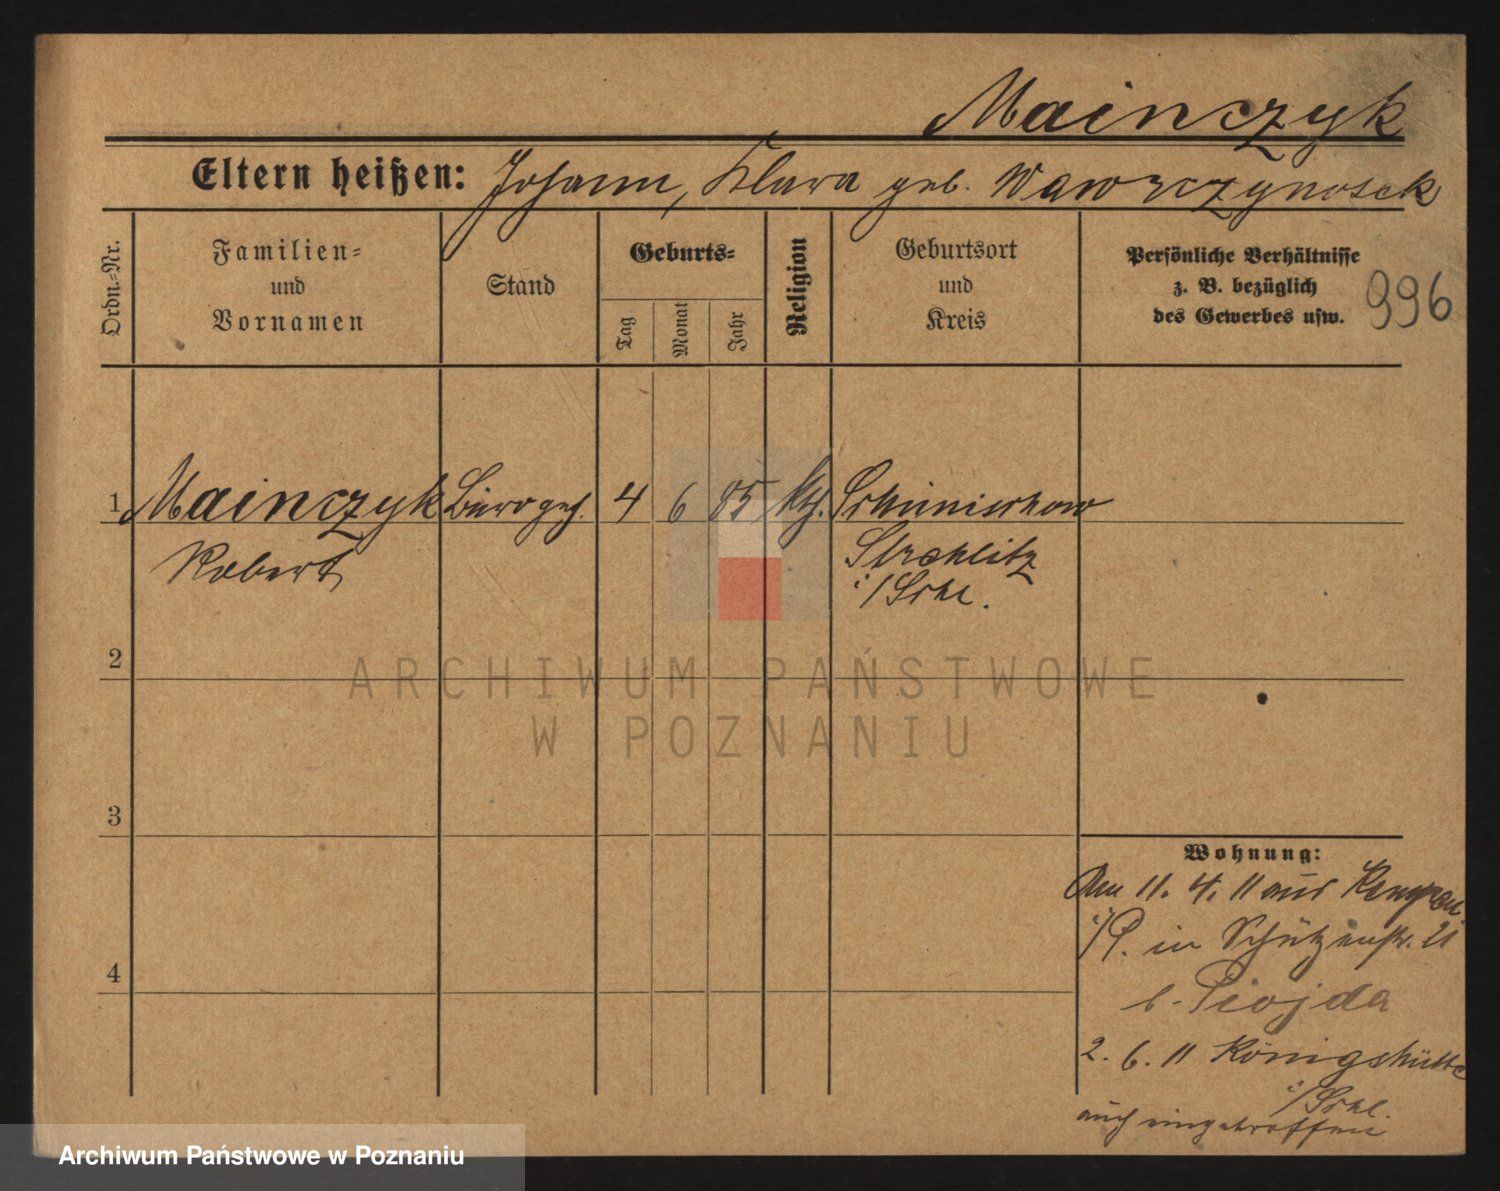 Mainczyk
Eltern heißen: Johann, Klara geb. Wawrzynosek
Ordn.-Nr.
Familien-
und
Vornamen
Stand
Geburts-
Tag
Monat
Jahr
Religion
Geburtsort
und
Kreis
Persönliche Verhältnisse
z. B. bezüglich
des Gewerbes usw.
996
1 Mainczyk Bürogeh. 4 6 85 kth. Schimischow
Robert
Strehlitz
i/Schl.
2
3
4
Wohnung:
Am 11. 4. 11 aus Kempen
i/P. in Schützenstr. 21
b. Piojda
2. 6. 11 Königshütte
i/Schl.
auch eingetroffen
ARCHIWUM PAŃSTWOWE
W POZNANIU
Archiwum Państwowe w Poznaniu